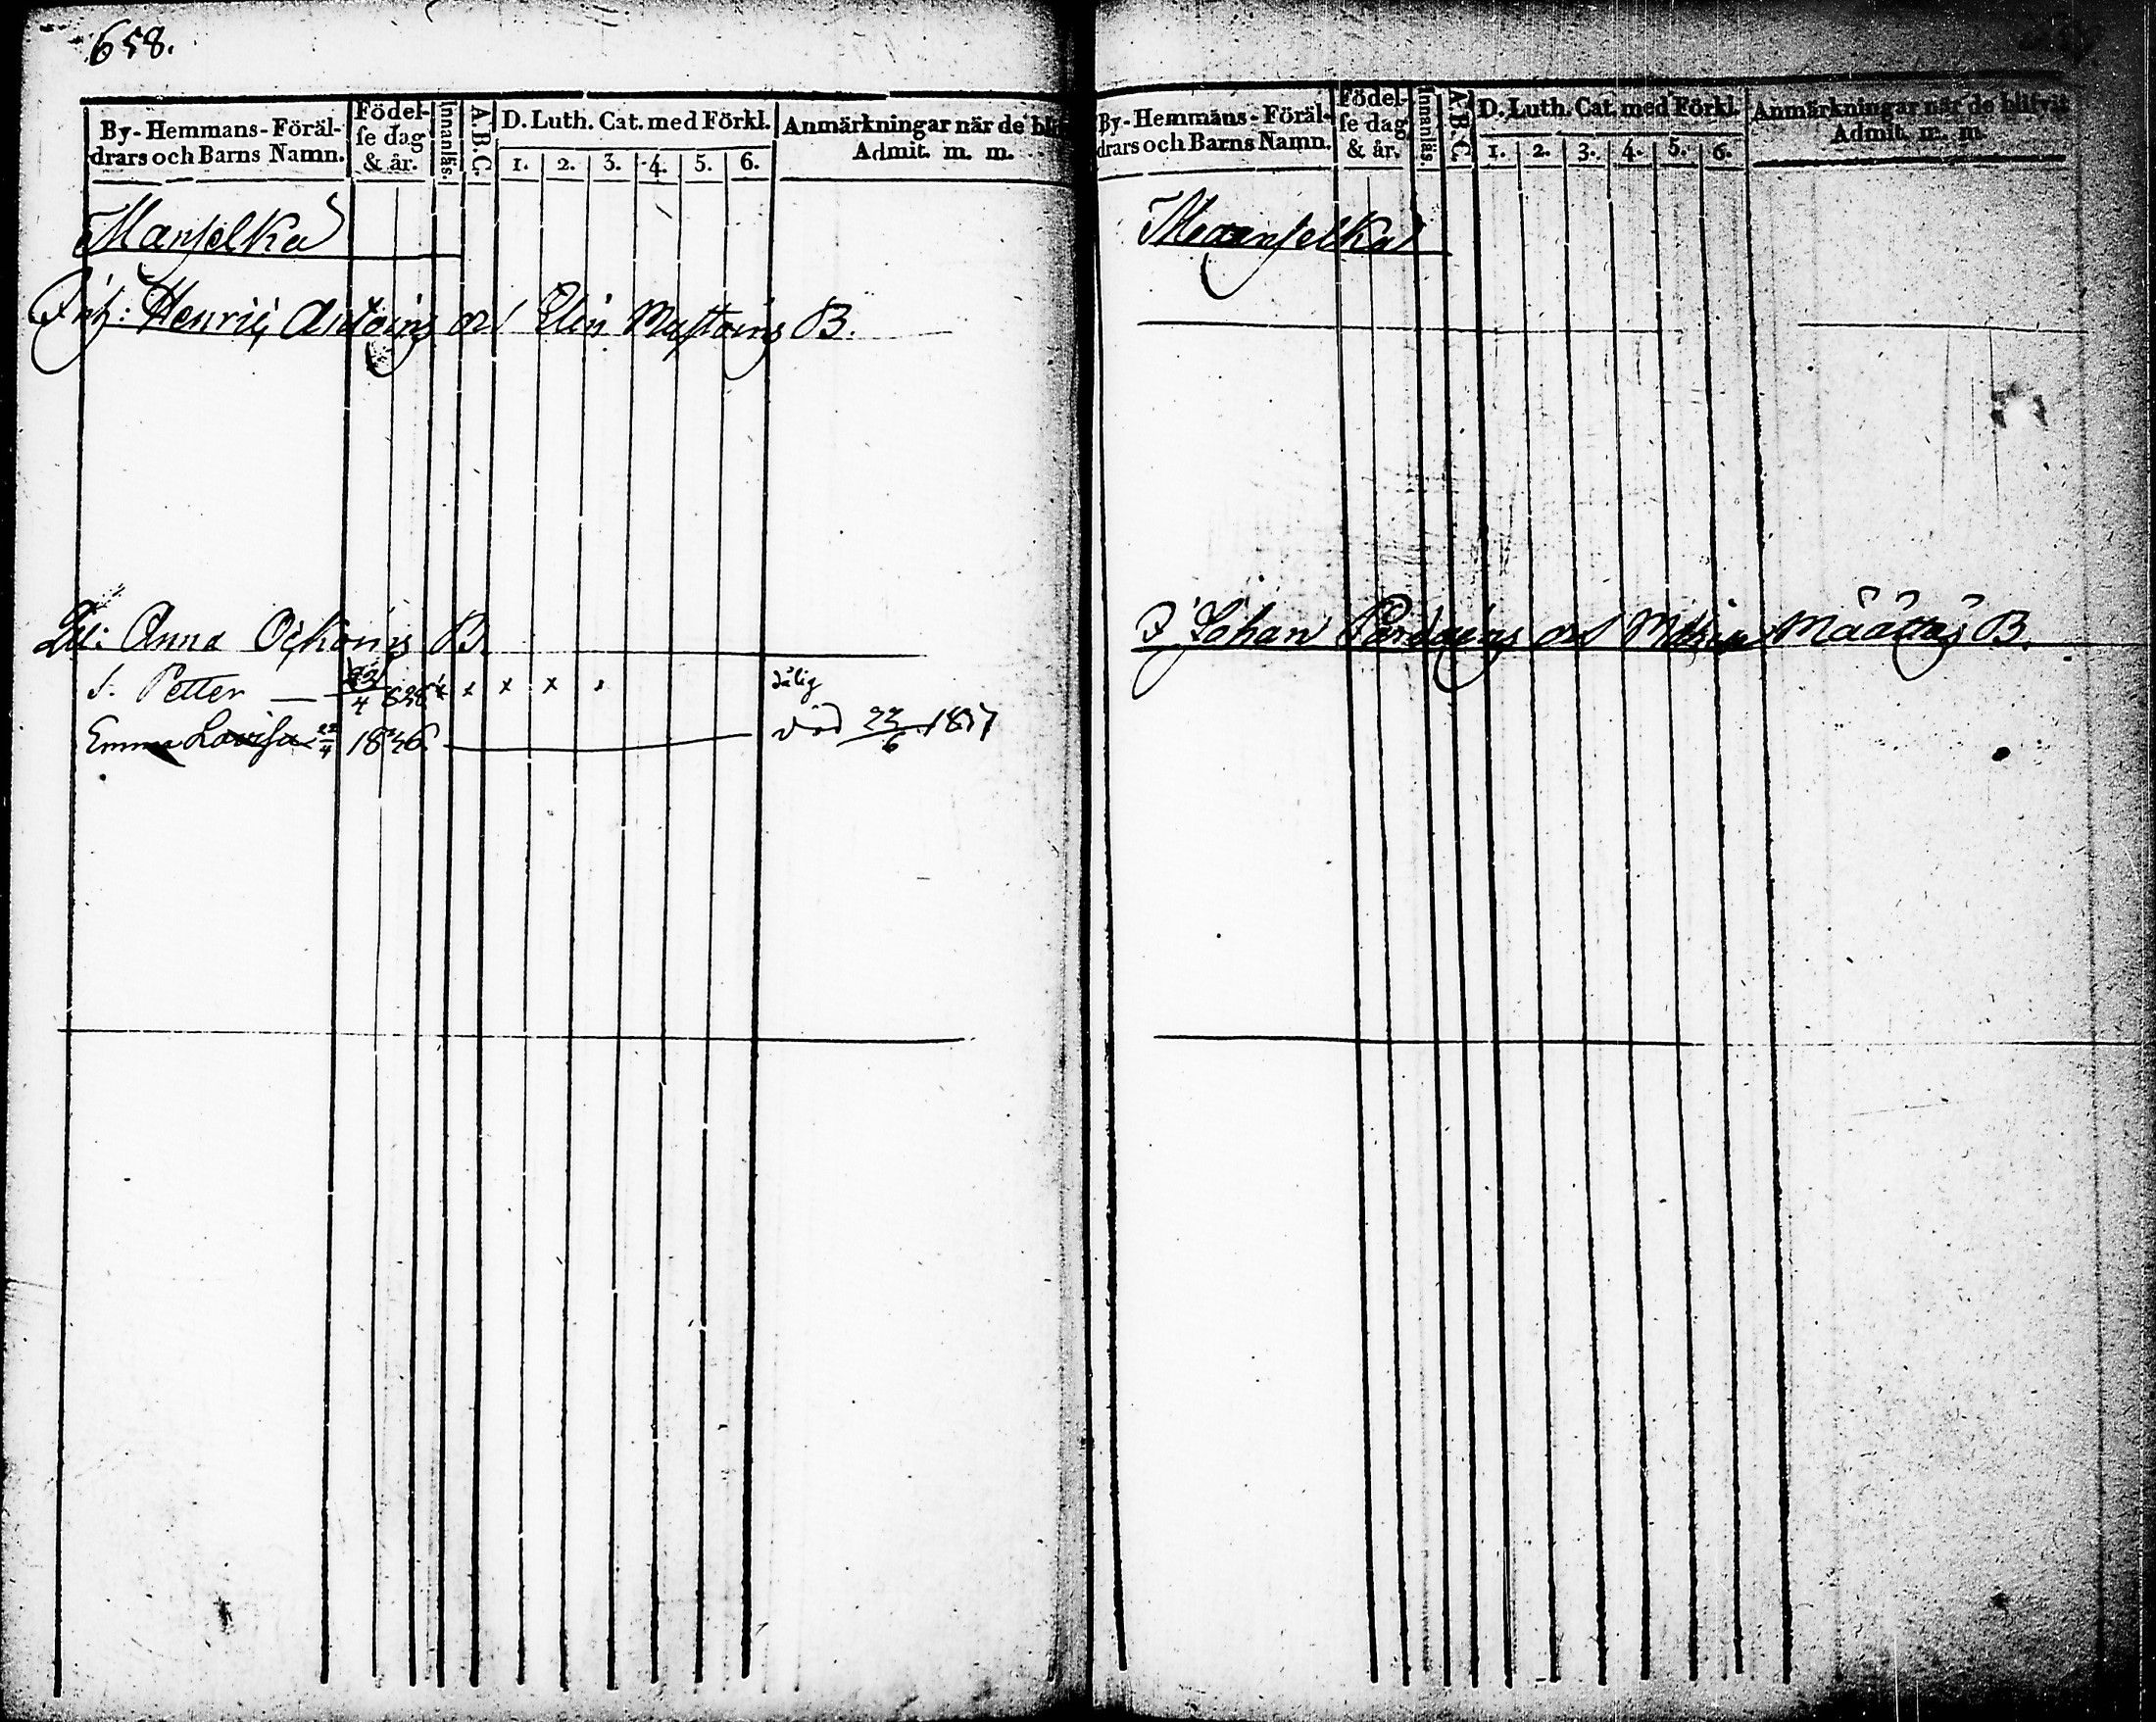 658.
By-Hemmans-Föräl-
drars och Barns Namn.
Födel-
se dag
& år.
Innanläs.
A.B.C.
D. Luth. Cat. med Förkl.
1. 2. 3. 4. 5. 6.
Anmärkningar när de blif
Admit. m. m.
Manselka
Henric Antoins och Elin Mustoins B.
Anna Oikoins B.
S. Petter — 23/4 x x x x dålig
Emma Lovisa 22/4 1846. död 23/6 1857
By-Hemmans-Föräl-
drars och Barns Namn.
Födel-
se dag
& år.
Innanläs.
A.B.C.
D. Luth. Cat. med Förkl.
1. 2. 3. 4. 5. 6.
Anmärkningar när de blifvit
Admit. m. m.
Maanselka
Johan Määttäs B.